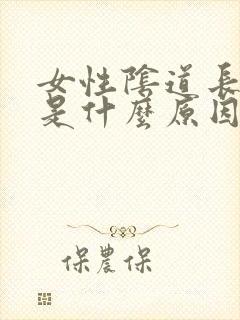 女性陰道長
是什麼原因
保農保